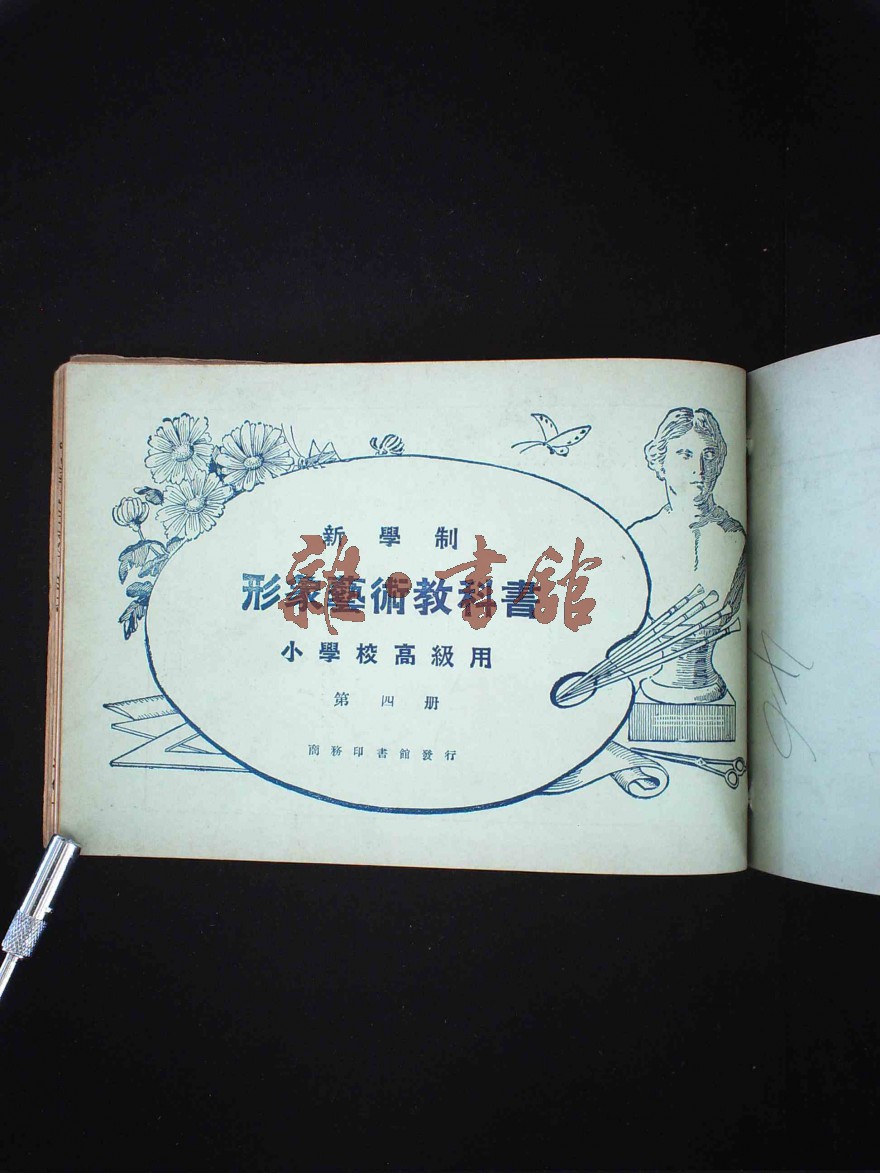 新學制
形象藝術教科書
小學校高級用
第四册
商務印書館發行
雜·書館